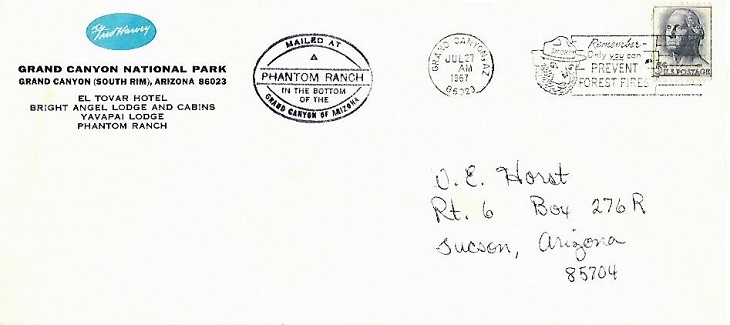 Fred Harvey
GRAND CANYON NATIONAL PARK
GRAND CANYON (SOUTH RIM), ARIZONA 86023
EL TOVAR HOTEL
BRIGHT ANGEL LODGE AND CABINS
YAVAPAI LODGE
PHANTOM RANCH
MAILED AT
PHANTOM RANCH
IN THE BOTTOM
OF THE
GRAND CANYON OF ARIZONA
GRAND CANYON, AZ
JUL 27
AM
1967
86023
SMOKEY
Remember-
Only you can
PREVENT
FOREST FIRES
U.S. POSTAGE
V. E. Horst
Rt. 6 Box 276R
Tucson, Arizona
85704